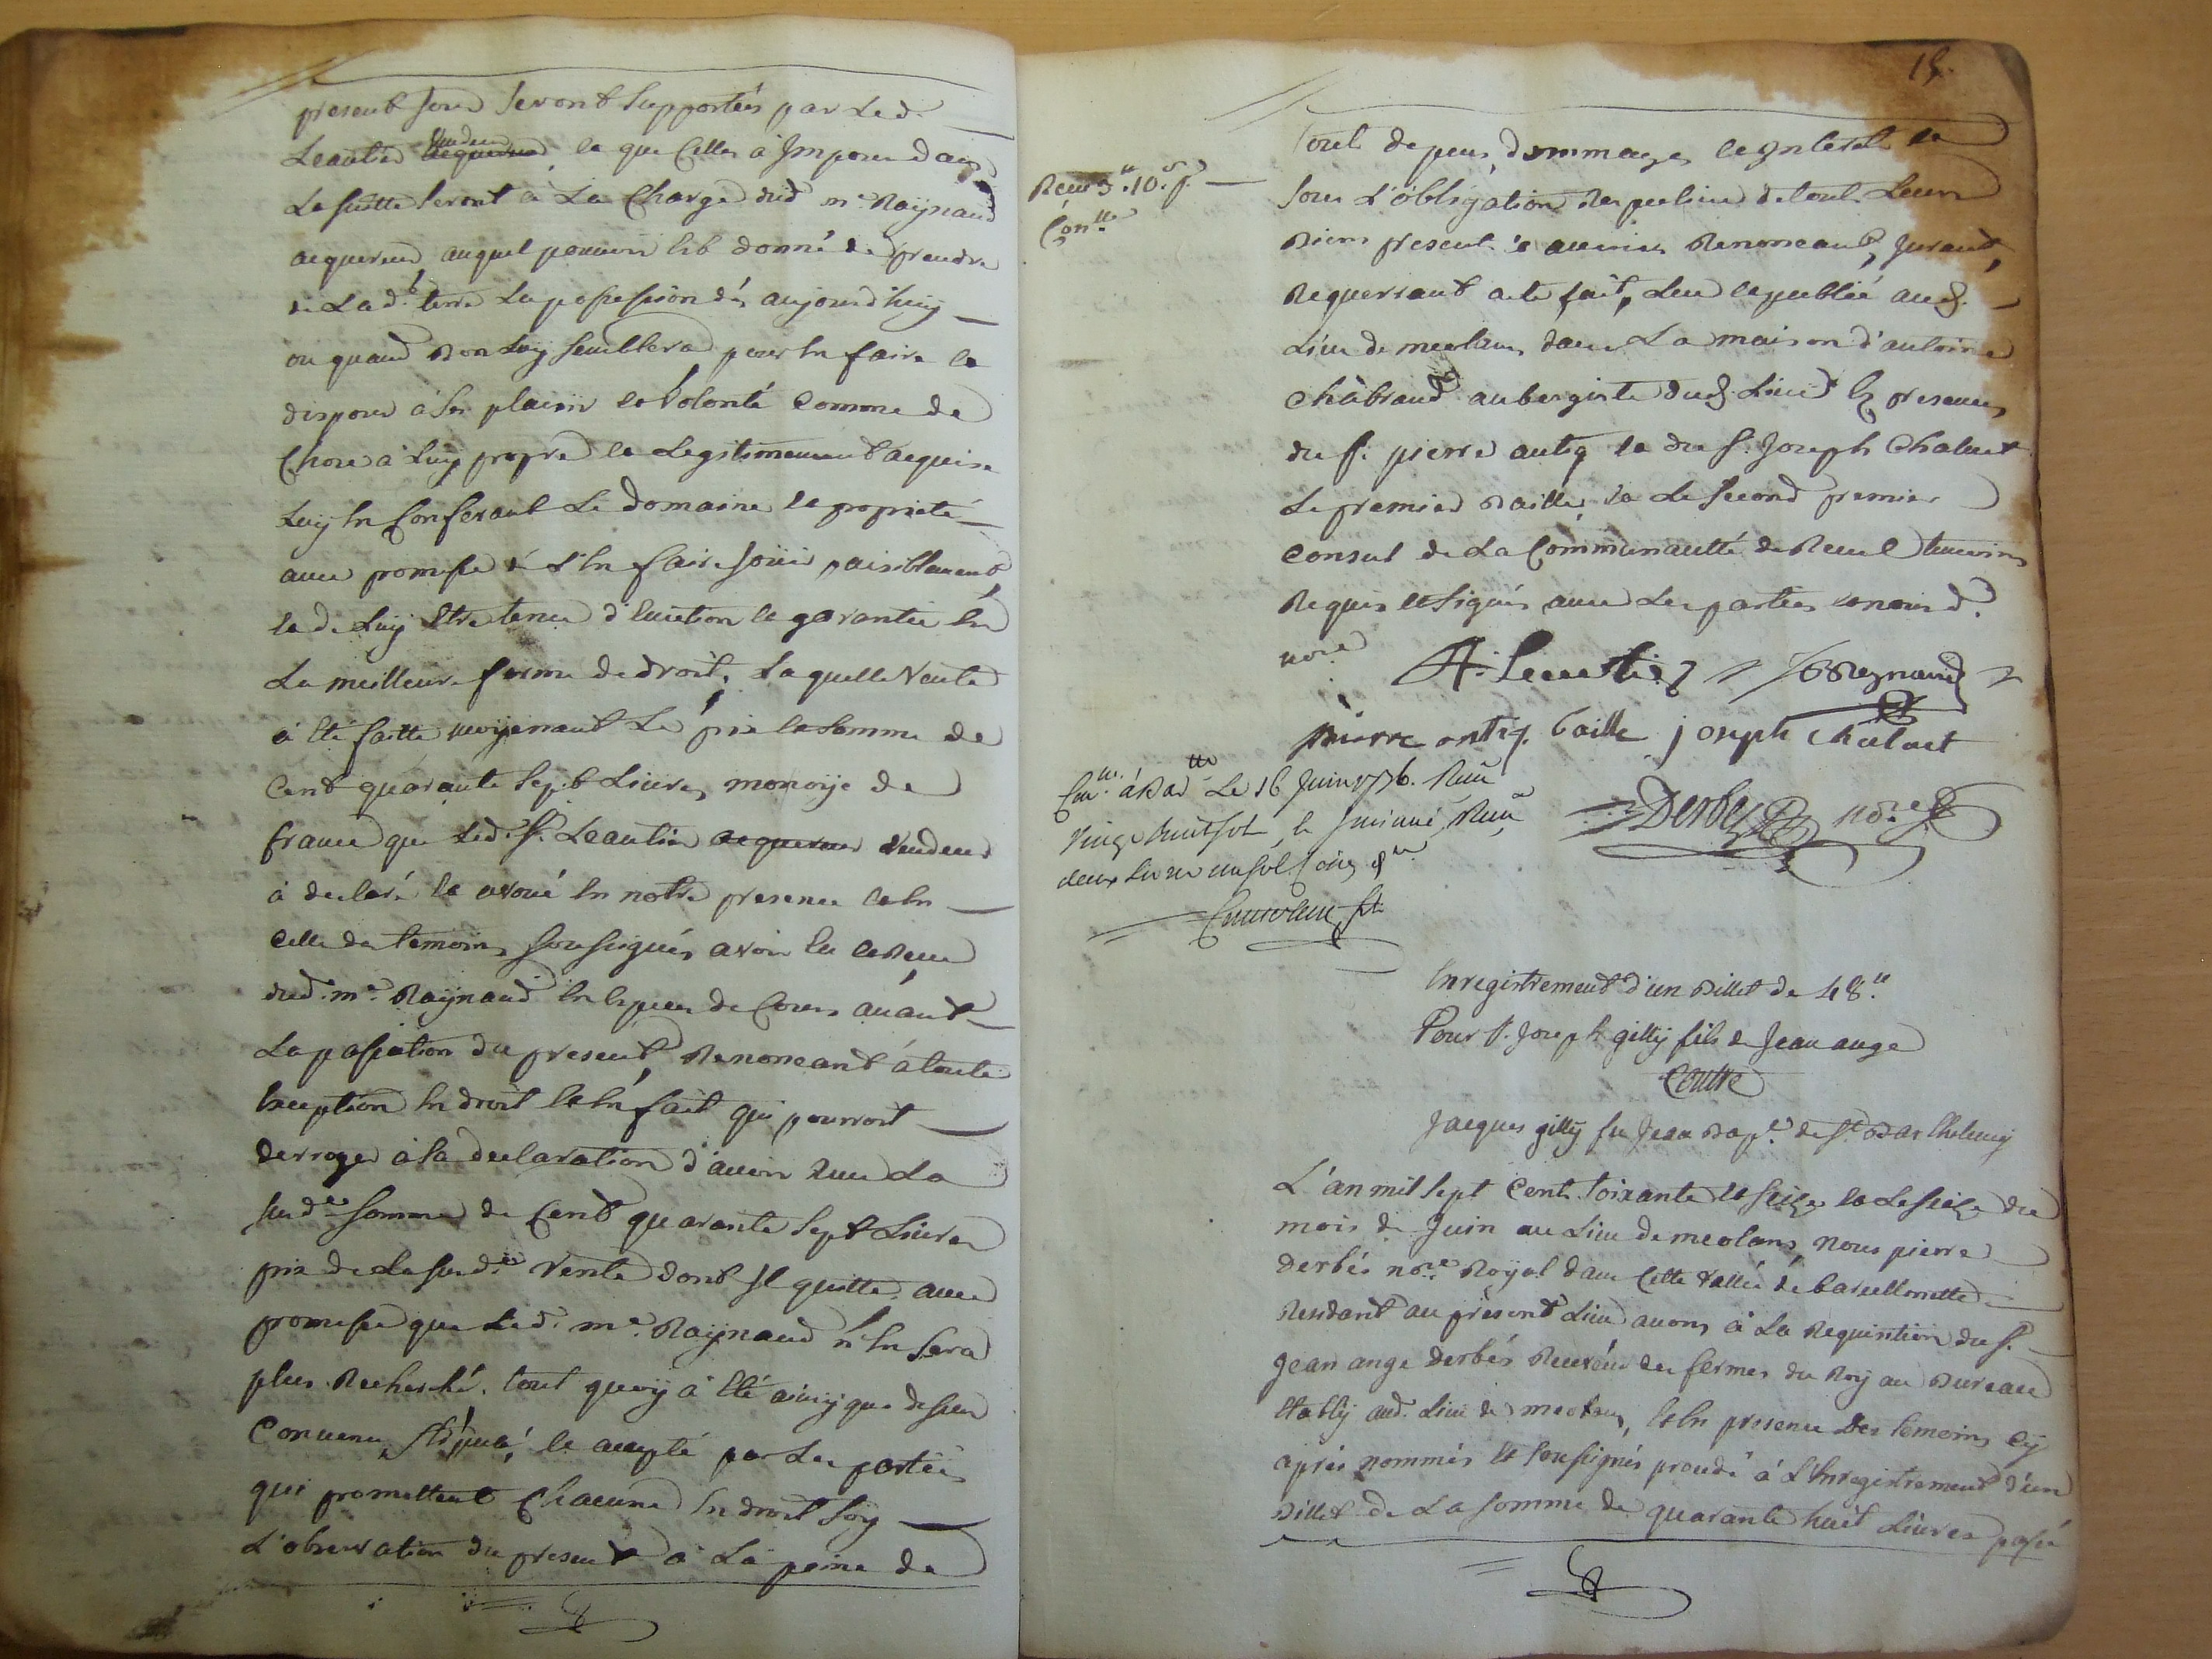 present jour seront supportées par led.
Leautier vendeur acquereur, et que celles à Imposer dans
La suitte seront à La Charge dud. me. Raÿnaud
acquereur, auquel pouvoir est donné de prendre
de Lad.te terre La possession dés aujourd'huij
ou quand Bon Luij semblera pour En faire et
disposer à ses plaisir et volonté Comme de
Chose à Luij propre et Legitimement acquise
Luij En Conferant Le Domaine et proprieté
avec promesse de L'en faire joüir paisiblement,
et de Luij Etre tenu d'Eviction et garantie En
La meilleure forme de droit, Laquelle Vente
à été faitte moÿenant Le prix et somme de
Cent quarante sept Livres monoÿe de
france que Led. Sr. Leautier acquereur vendeur
à declaré et avoué En notre presence et En
Celle des temoins soussignés avoir Eu et Reçeu
dud. me. Raÿnaud En Especes de Cours avant
La passation du present, Renoncant à toute
Exception En droit et En fait qui pourroit
derroger à sa declaration d'avoir Receu La
susd.te somme de Cent quarante sept Livres
prix de La susd.te Vente dont Il quitte, avec
promesse que Led. me. Raÿnaud n'En sera
plus Recherché. tout quoÿ à été ainsÿ que dessus
Convenu, stipulé, et accepté par Les parties
qui promettent Chacune En droit soÿ
L'observation du present à La peine de
18.
tout depens, dommages et Interets et
sous L'obligation Respective de tout Leurs
Biens present & avenir Renonceant, Jurant,
Requerrant acte fait, Leu et publié aud.
Lieu de meolans dans La maison d'antoine
Chàbrand aubergiste dud. Lieu Ez presences
du Sr. pierre antiq et du Sr. Joseph Chaluet
Le premier Baille, et Le second premier
Consul de La Communautté de Revel temoins
Requis et signés avec Les parties et nousd.
nore.
Receu 3ll. 10s. p.
Conlle
A. Leautier JBRegnaud
pierre antiq. baille joseph chaluet
Derbés nore
Conlle. à Bar.tte Le 16 Juin 1776. Receu
Vingt huit sol, et Insinué Receu
deux Livres un sol Cinq d.rs
Enregistrement d'un Billet de 48ll.
Pour Sr. Joseph gillÿ fils de Jean ange
Contre
Jacques gillÿ fu Jean Bap.te de St. Barthelemÿ
L'an mil sept Cent soixante et seize et Le seize du
mois de Juin au Lieu de meolans, nous pierre
Derbés nore. Roÿal dans Cette vallée de barcellonette
Residant au present Lieu avons à La Requisition du Sr.
Jean ange Derbés Receveur des fermes du Roÿ au Bureau
Etablÿ aud. Lieu de meolans, et En presence Des temoins cÿ
aprés nommés et soussignés procedé à L'Enregistrement d'un
Billet de La somme de quarante huit Livres passé